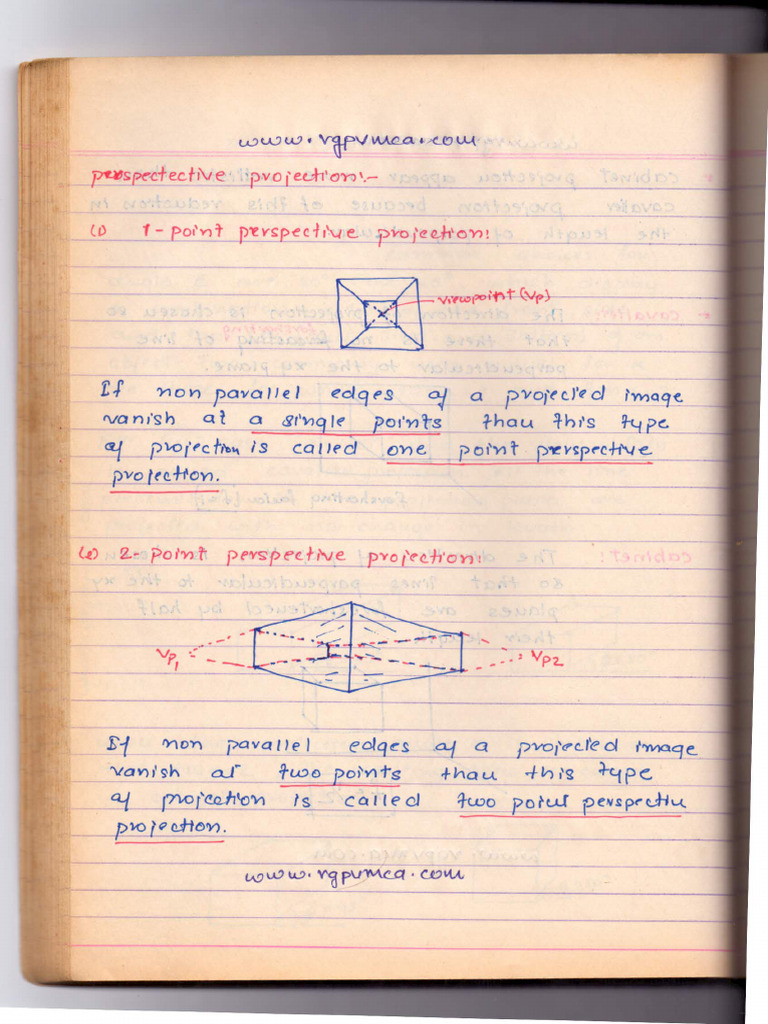 www.rgpvmca.com
perspectective projection:-
(1) 1-point perspective projection:
viewpoint (Vp)
If non parallel edges of a projected image
vanish at a single points than this type
of projection is called one point perspective
projection.
(2) 2-point perspective projection:
VP1
VP2
If non parallel edges of a projected image
vanish at two points than this type
of projection is called two point perspectiv
projection.
www.rgpvmca.com